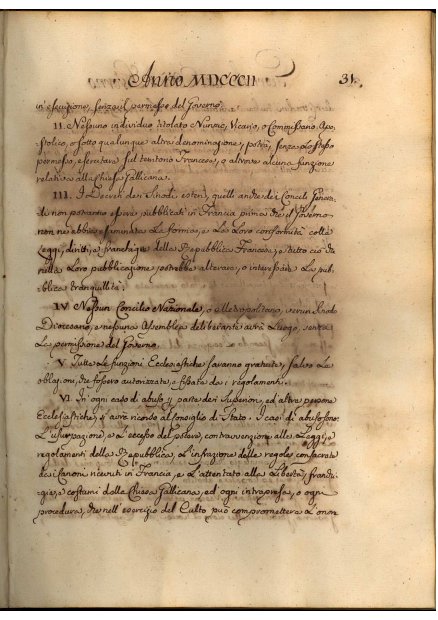 Anno MDCCCII
31.
in esecuzione, senza il permesso del Governo.
II. Nessuno individuo titolato Nunzio, Vicario, o Commissario Apo,
stolico, o sotto qualunque altra denominazione, potrà, senza lo stesso
permesso, esercitare sul territorio Francese, o altrove alcuna funzione
relativa alla Chiesa Gallicana.
III. I Decreti dei Sinodi esteri, quelli anche dei Concilj Genera,
li non potranno essere pubblicati in Francia prima che il Governo
non ne abbia esaminata la forma, e la Loro conformità colle
Leggi, diritti, e franchigie della Repubblica Francese, e tutto ciò che
nella Loro pubblicazione potrebbe alterare, o interessare la pub,
blica tranquillità.
IV. Nessun Concilio Nazionale, o Metropolitano, verun Sinodo
Diocesano, e nessuna Assemblea deliberante avrà Luogo, senza
La permissione del Governo.
V. Tutte le funzioni Ecclesiastiche saranno gratuite, salvo Le
oblazioni, che fossero autorizzate, e fissate dai regolamenti.
VI. In ogni caso di abuso, parte dei Superiori, ed altre persone
Ecclesiastiche, si avrà ricorso al Consiglio di Stato. I casi di abuso sono:
L'usurpazione, e L'eccesso del potere, contravvenzione alle Leggi, e
regolamenti della Repubblica, L'infrazione delle regole consacrate
dai Canoni ricevuti in Francia, e L'attentato alla Libertà, franchi,
gie, e costumi della Chiesa Gallicana, ed ogni intrapresa, o ogni
procedura, che nell'esercizio del Culto può compromettere L'onor